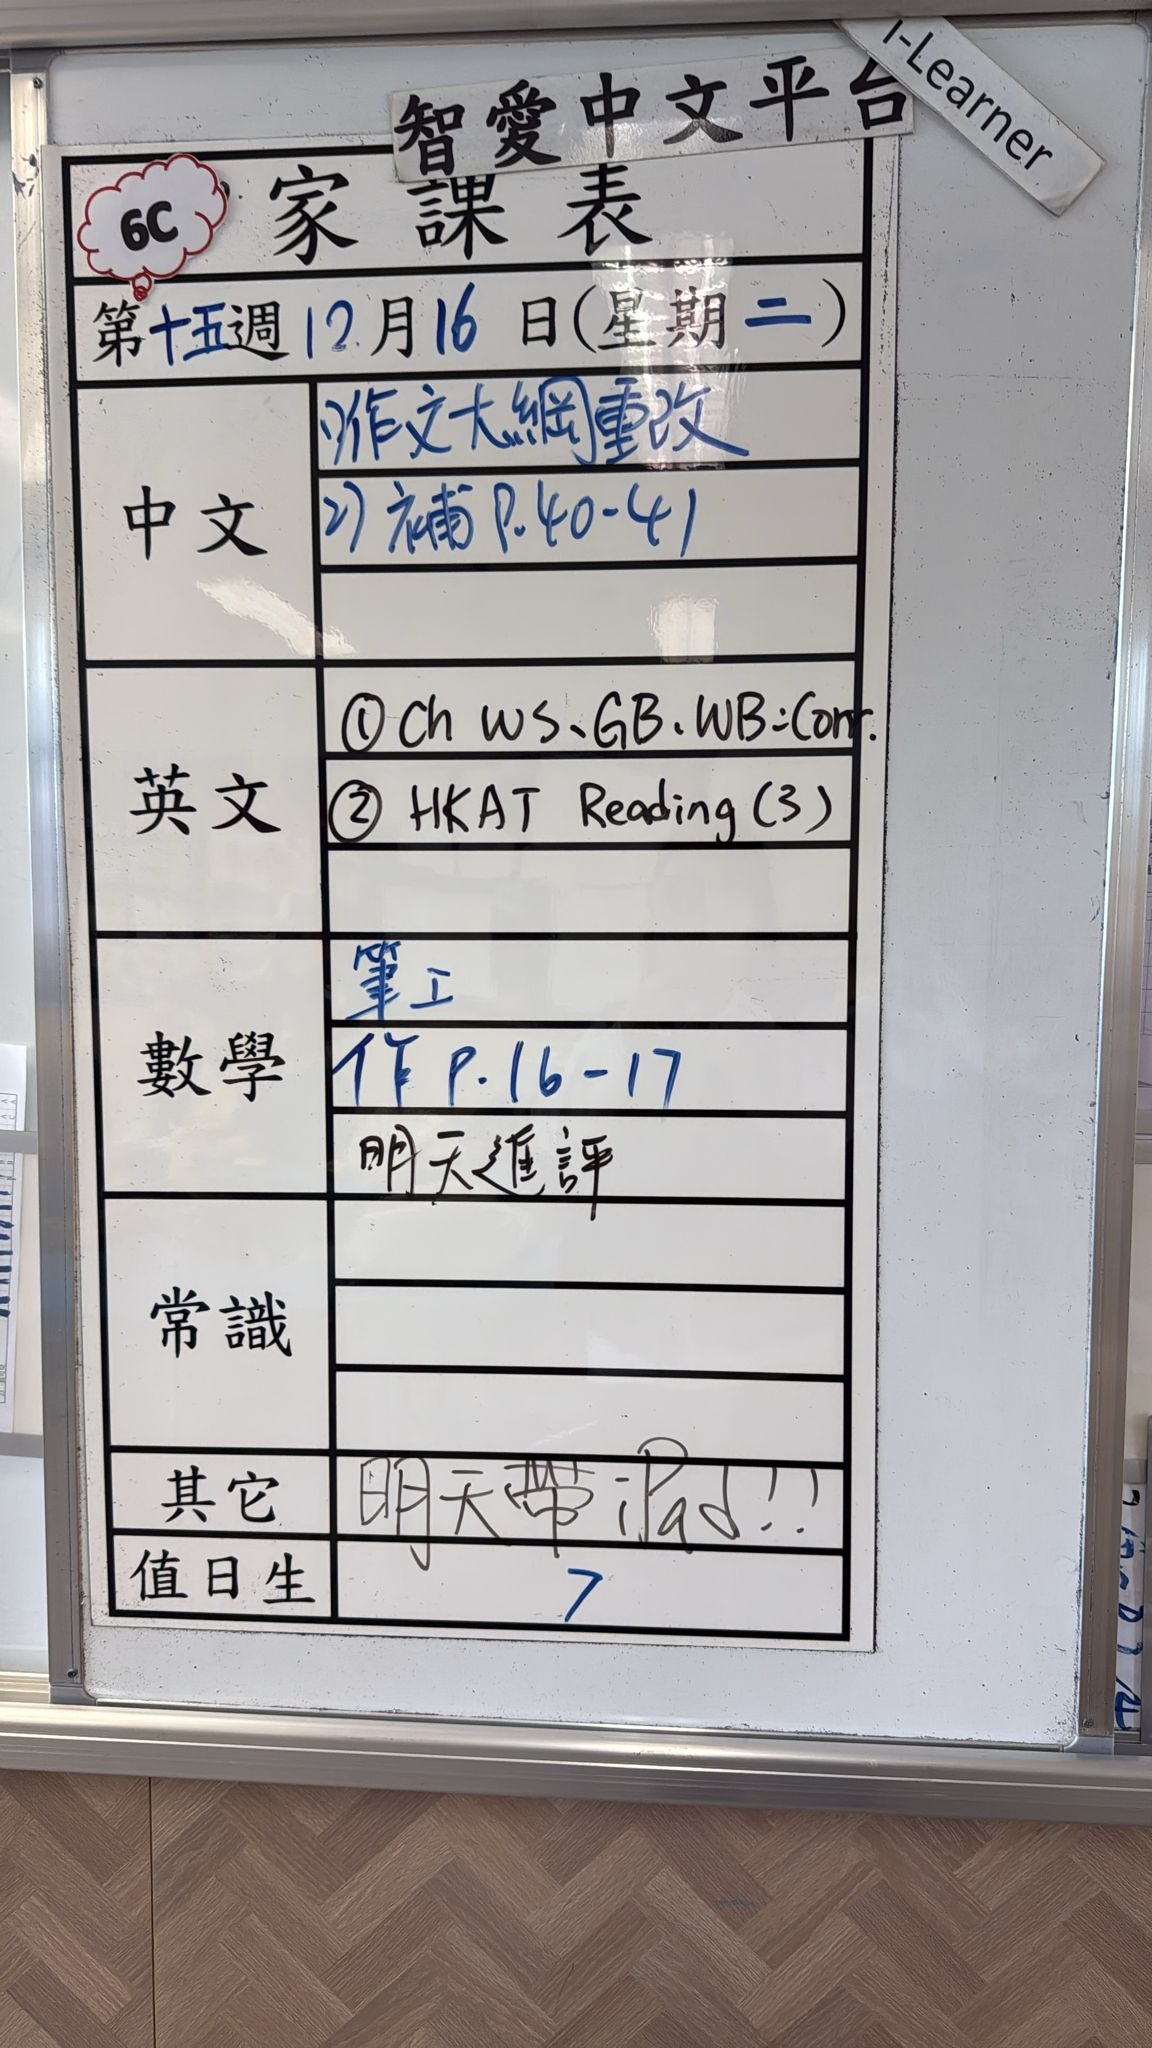 智愛中文平台
i-Learner
6C
家課表
第十五週12月16日(星期二)
中文
1)作文大綱重改
2)補P.40-41
英文
①Ch WS、GB、WB:Corr.
②HKAT Reading(3)
數學
筆工
作P.16-17
明天進評
常識
其它
明天帶iPad!!
值日生
7